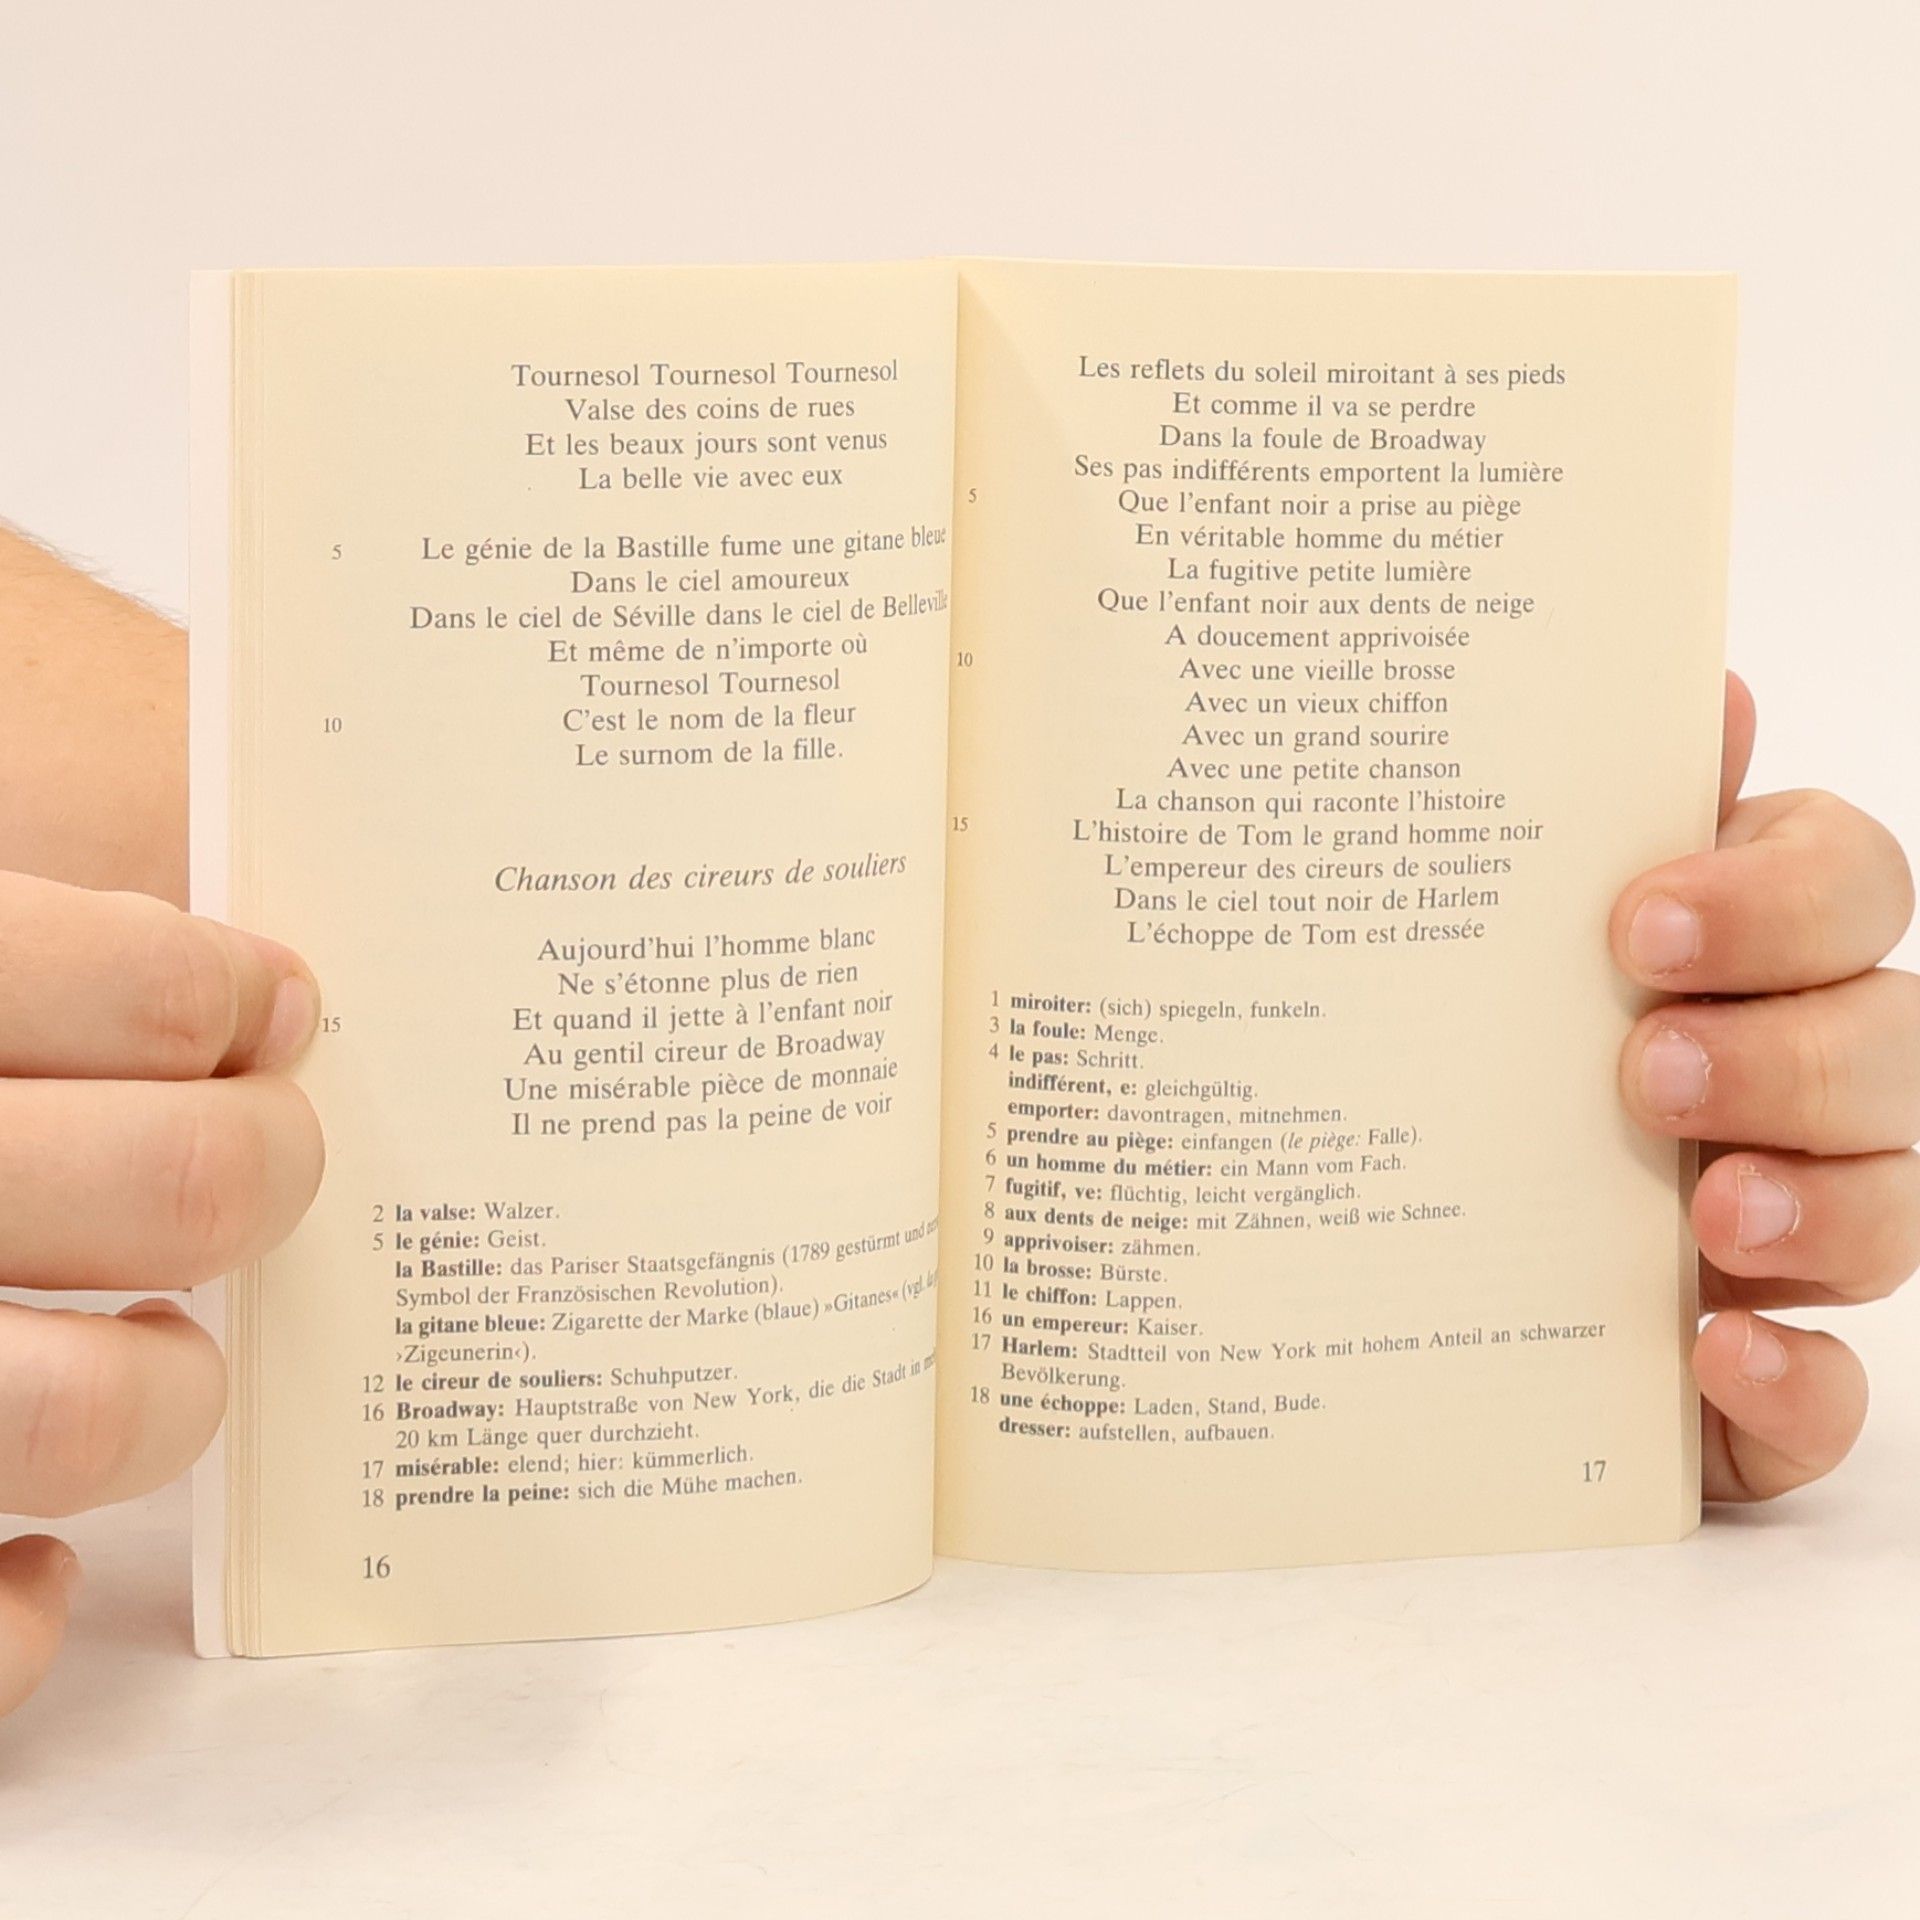 Tournesol Tournesol Tournesol
Valse des coins de rues
Et les beaux jours sont venus
La belle vie avec eux
5 Le génie de la Bastille fume une gitane bleue
Dans le ciel amoureux
Dans le ciel de Séville dans le ciel de Belleville
Et même de n'importe où
Tournesol Tournesol
10 C'est le nom de la fleur
Le surnom de la fille.
Chanson des cireurs de souliers
Aujourd'hui l'homme blanc
Ne s'étonne plus de rien
15 Et quand il jette à l'enfant noir
Au gentil cireur de Broadway
Une misérable pièce de monnaie
Il ne prend pas la peine de voir
2 la valse: Walzer.
5 le génie: Geist.
la Bastille: das Pariser Staatsgefängnis (1789 gestürmt und
Symbol der Französischen Revolution).
la gitane bleue: Zigarette der Marke (blaue) »Gitanes« (vgl.
›Zigeunerin‹).
12 le cireur de souliers: Schuhputzer.
16 Broadway: Hauptstraße von New York, die die Stadt in
20 km Länge quer durchzieht.
17 misérable: elend; hier: kümmerlich.
18 prendre la peine: sich die Mühe machen.
16
Les reflets du soleil miroitant à ses pieds
Et comme il va se perdre
Dans la foule de Broadway
Ses pas indifférents emportent la lumière
5 Que l'enfant noir a prise au piège
En véritable homme du métier
La fugitive petite lumière
Que l'enfant noir aux dents de neige
A doucement apprivoisée
10 Avec une vieille brosse
Avec un vieux chiffon
Avec un grand sourire
Avec une petite chanson
La chanson qui raconte l'histoire
15 L'histoire de Tom le grand homme noir
L'empereur des cireurs de souliers
Dans le ciel tout noir de Harlem
L'échoppe de Tom est dressée
1 miroiter: (sich) spiegeln, funkeln.
3 la foule: Menge.
4 le pas: Schritt.
indifférent, e: gleichgültig.
emporter: davontragen, mitnehmen.
5 prendre au piège: einfangen (le piège: Falle).
6 un homme du métier: ein Mann vom Fach.
7 fugitif, ve: flüchtig, leicht vergänglich.
8 aux dents de neige: mit Zähnen, weiß wie Schnee.
9 apprivoiser: zähmen.
10 la brosse: Bürste.
11 le chiffon: Lappen.
16 un empereur: Kaiser.
17 Harlem: Stadtteil von New York mit hohem Anteil an schwarzer
Bevölkerung.
18 une échoppe: Laden, Stand, Bude.
dresser: aufstellen, aufbauen.
17